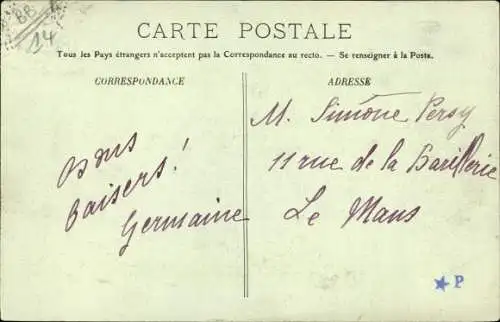 BB
14
CARTE POSTALE
Tous les Pays étrangers n'acceptent pas la Correspondance au recto. — Se renseigner à la Poste.
CORRESPONDANCE
Bons
baisers!
Germaine
ADRESSE
M. Simone Persy
11 rue de la Barillerie
Le Mans
★ P